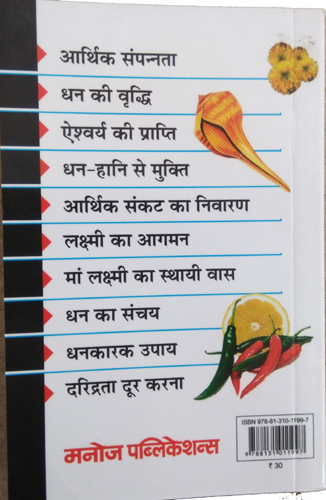 आर्थिक संपन्नता
धन की वृद्धि
ऐश्वर्य की प्राप्ति
धन-हानि से मुक्ति
आर्थिक संकट का निवारण
लक्ष्मी का आगमन
मां लक्ष्मी का स्थायी वास
धन का संचय
धनकारक उपाय
दरिद्रता दूर करना
ISBN 978-81-310-1199-7
9788131011997
₹ 30
मनोज पब्लिकेशन्स